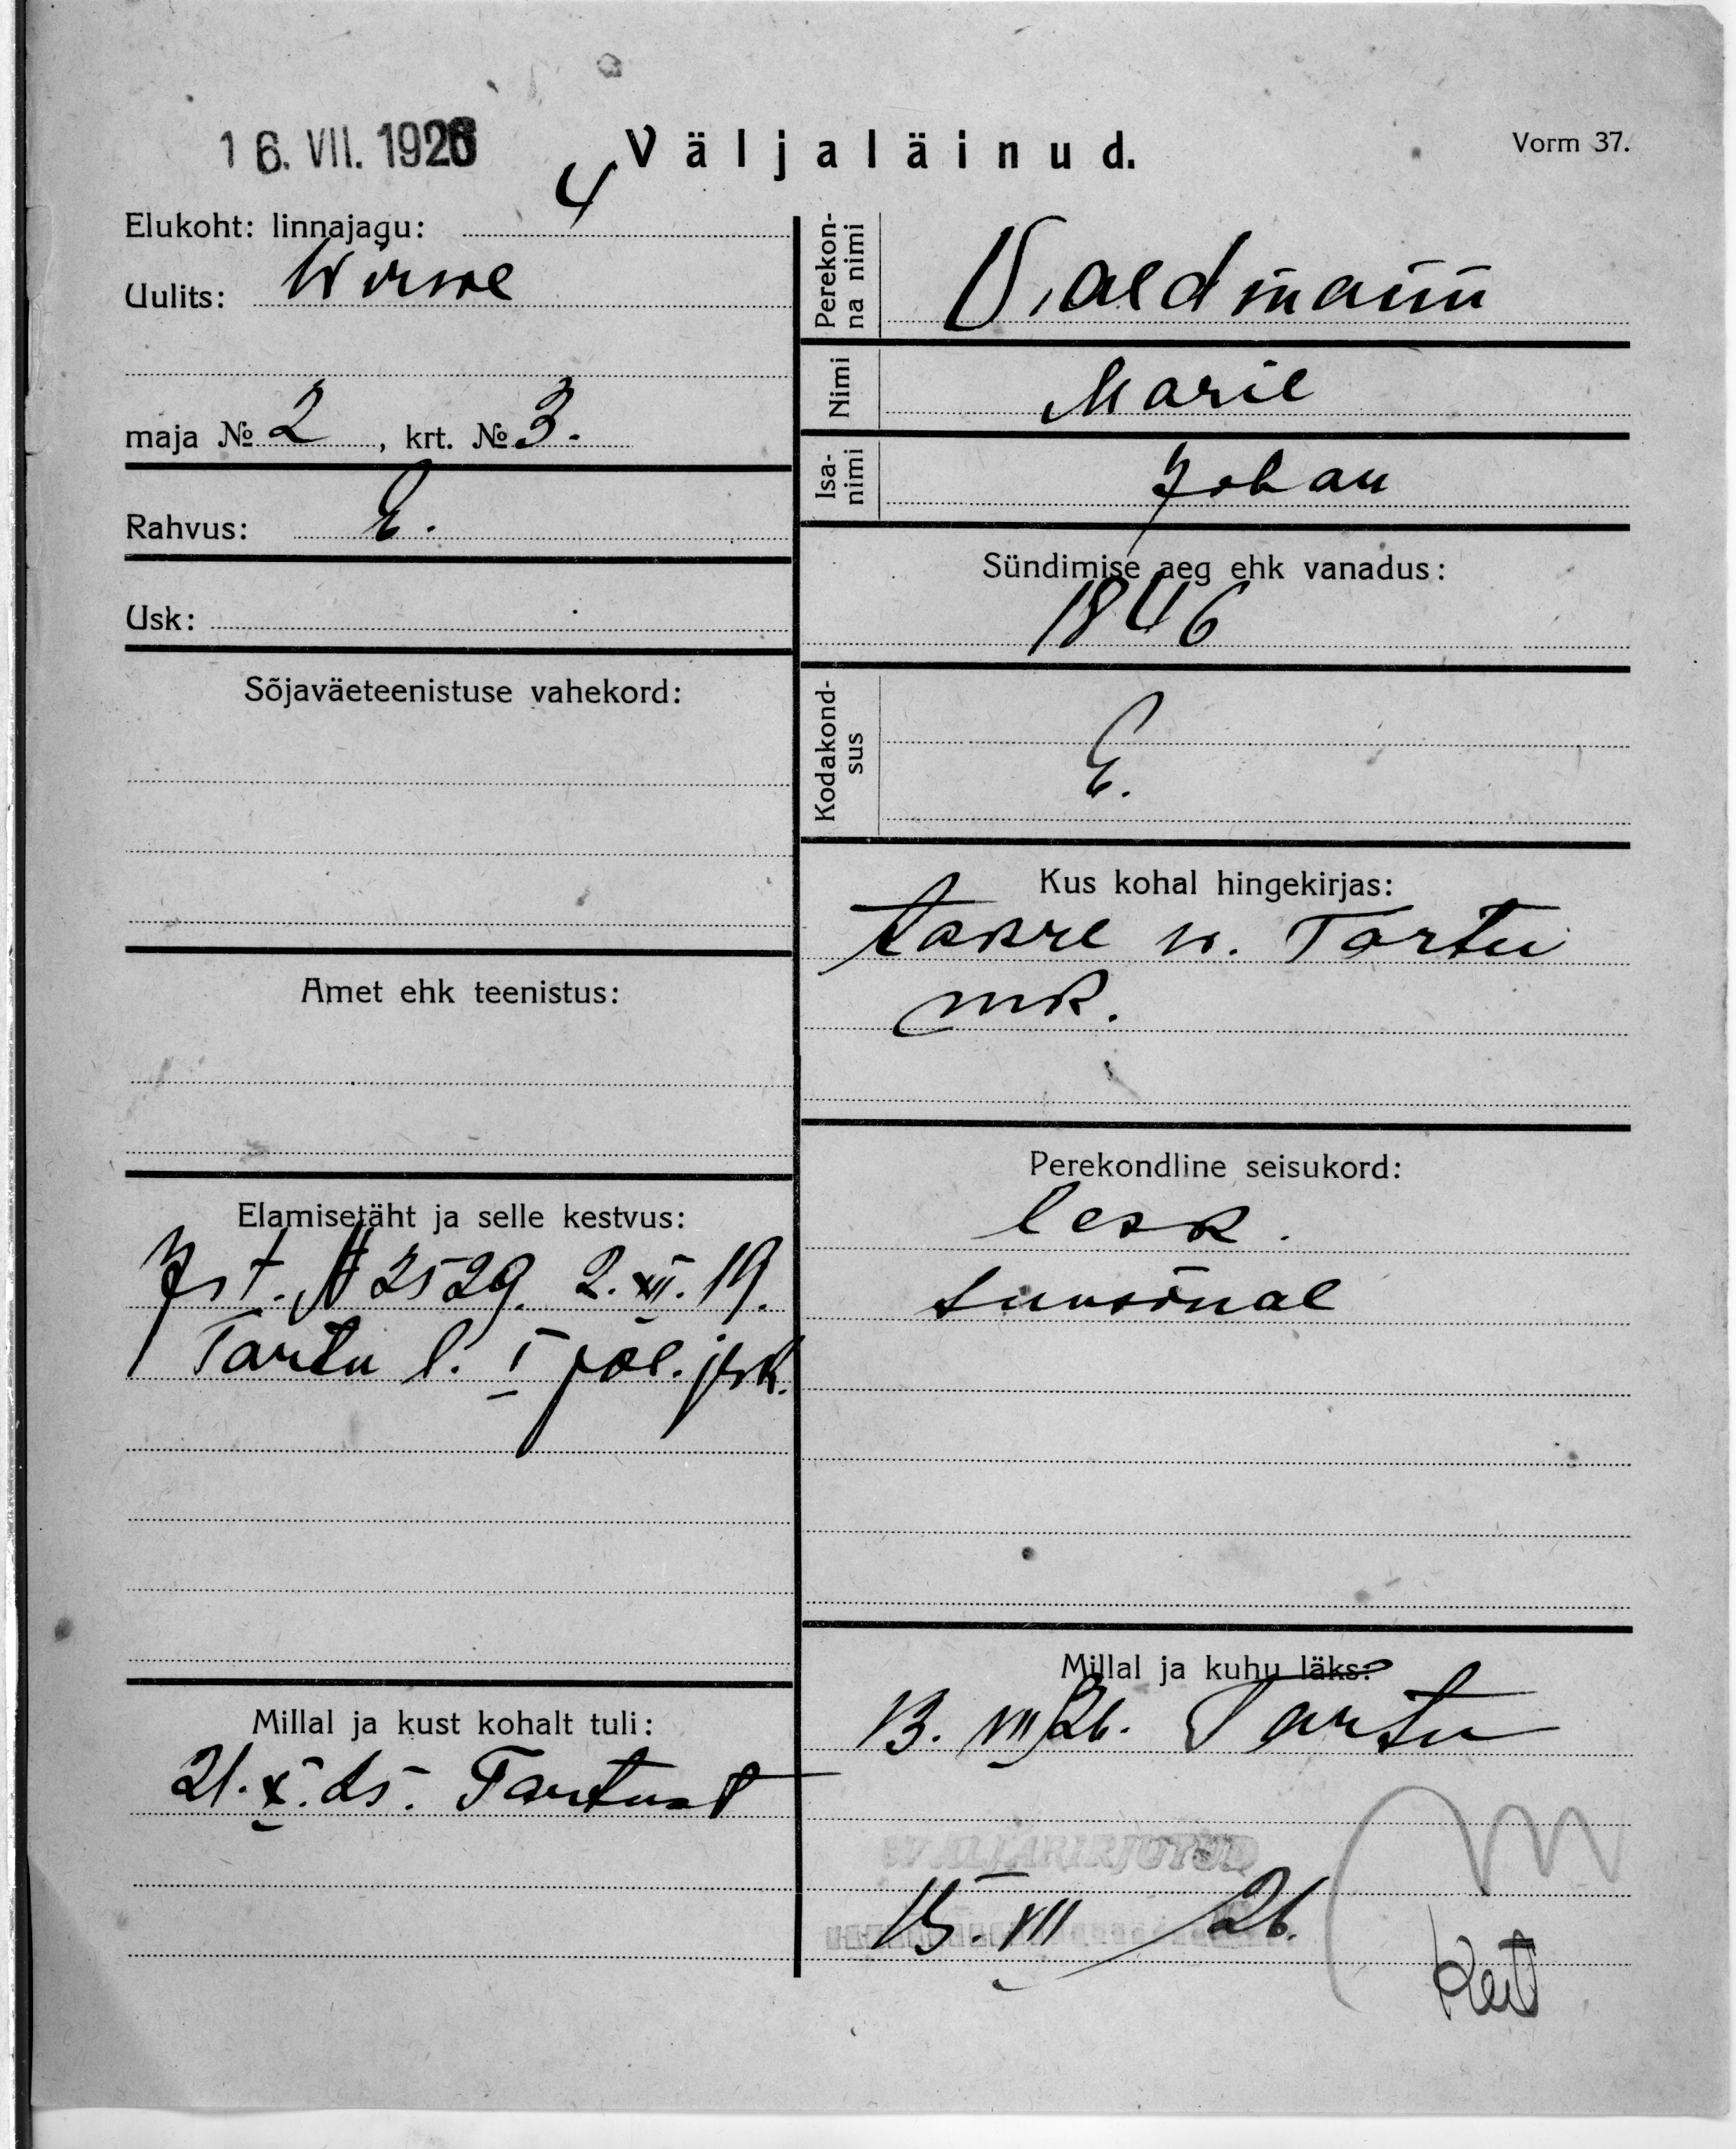 16. VII. 1926
Väljaläinud.
Vorm 37.
Elukoht: linnajagu: 4
Uulits:
maja № 2, krt. № 3.
Rahvus: E.
Usk:
Sõjaväeteenistuse vahekord:
Amet ehk teenistus:
Elamisetäht ja selle kestvus:
Ist. № 2529. 2. XII. 19.
Tartu l. I pol. jsk.
Millal ja kust kohalt tuli:
21. X. 25. Tartust
Perekonna nimi
Valdmann
Nimi
Marie
Isanimi
Johan
Sündimise aeg ehk vanadus:
1846
Kodakondsus
E.
Kus kohal hingekirjas:
w. Tartu
mk.
Perekondline seisukord:
lesk.
suusõnal
Millal ja kuhu läks:
13. VII 26. Tartu
WÄLJAKIRJUTUD
15. VII 26.